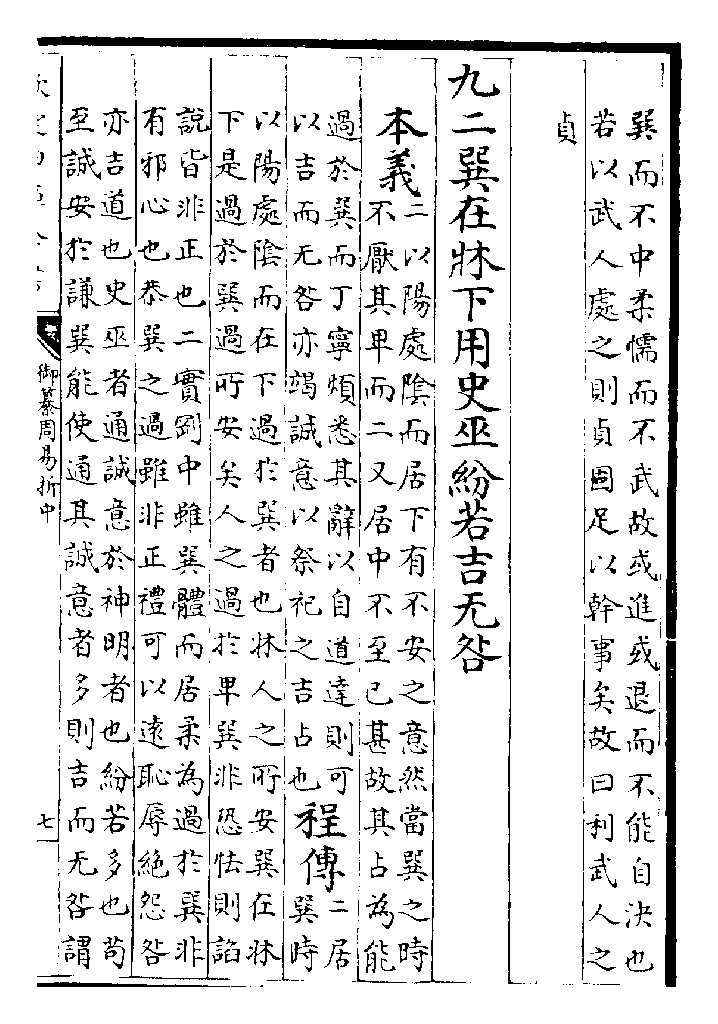 巽而不中柔懦而不武故或進或退而不能自決也
若以武人處之則貞固足以幹事矣故曰利武人之
貞
九二巽在牀下用史巫紛若吉无咎
本義
二以陽處陰而居下有不安之意然當巽之時
不厭其卑而二又居中不至已甚故其占為能
過於巽而丁寧煩悉其辭以自道達則可
以吉而无咎亦竭誠意以祭祀之吉占也
程傳
二居
巽時
以陽處陰而在下過於巽者也牀人之所安巽在牀
下是過於巽過所安矣人之過於卑巽非恐怯則諂
說皆非正也二實剛中雖巽體而居柔為過於巽非
有邪心也恭巽之過雖非正禮可以遠恥辱絕怨咎
亦吉道也史巫者通誠意於神明者也紛若多也苟
至誠安於謙巽能使通其誠意者多則吉而无咎謂
御纂周易折中
七